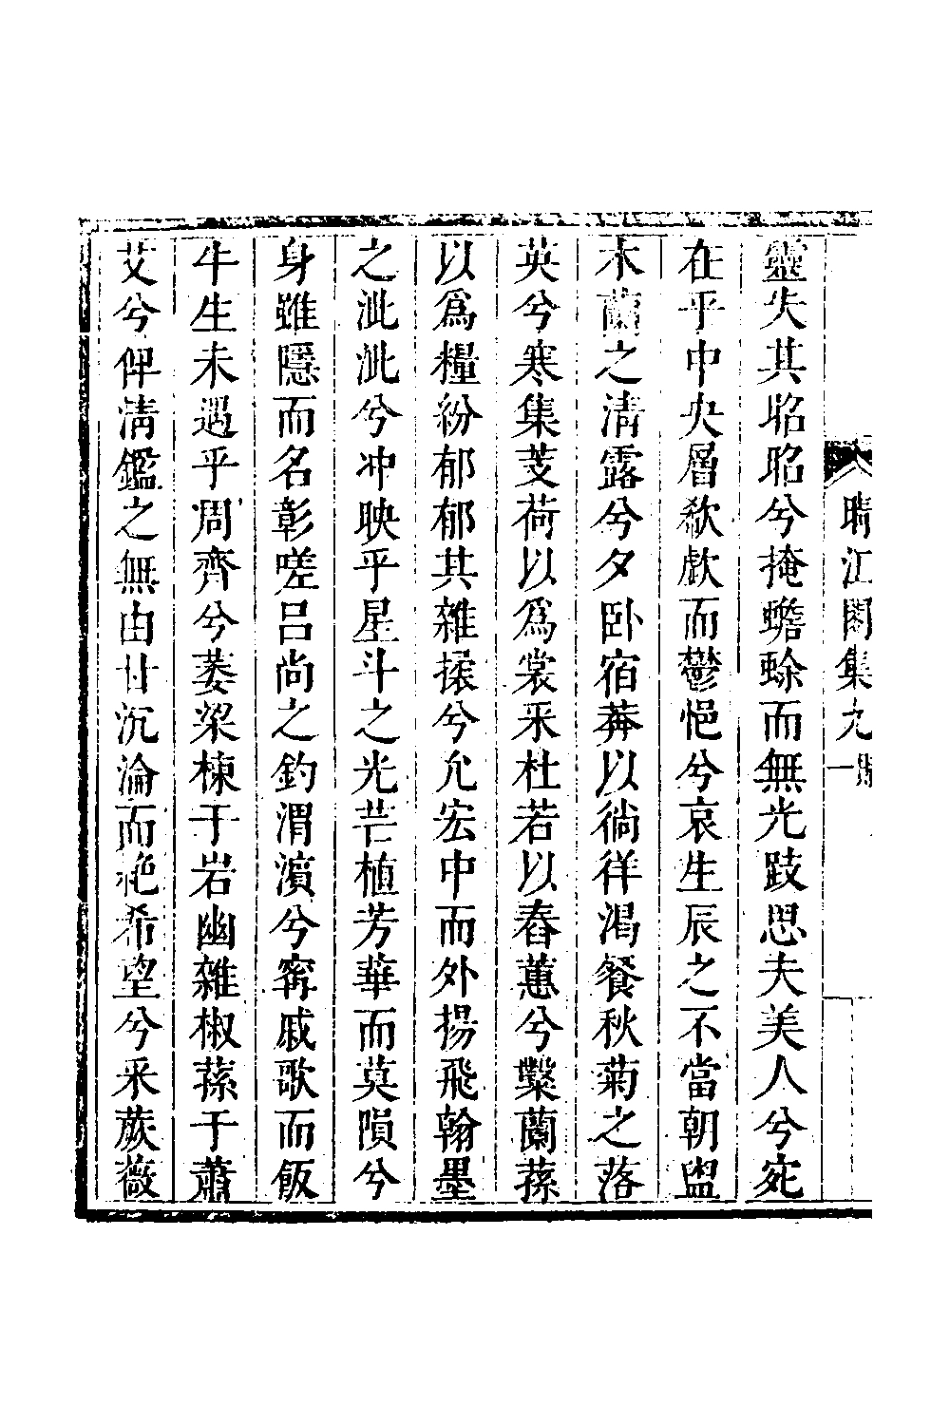 晴江閣集九
靈失其昭昭兮掩蟾蜍而無光跂思夫美人兮宛
在乎中央層欷歔而鬱悒兮哀生辰之不當朝盥
木蘭之清露兮夕卧宿莽以徜徉渴餐秋菊之落
英兮寒集芰荷以爲裳采杜若以舂蕙兮糳蘭蓀
以爲糧紛郁郁其雜揉兮允宏中而外揚飛翰墨
之泚泚兮冲映乎星斗之光芒植芳華而莫隕兮
身雖隱而名彰嗟呂尚之釣渭濱兮甯戚歌而飯
牛生未遇乎周齊兮萎梁棟于岩幽雜椒蓀于蕭
艾兮俾清鑑之無由甘沉淪而絶希望兮采蕨薇